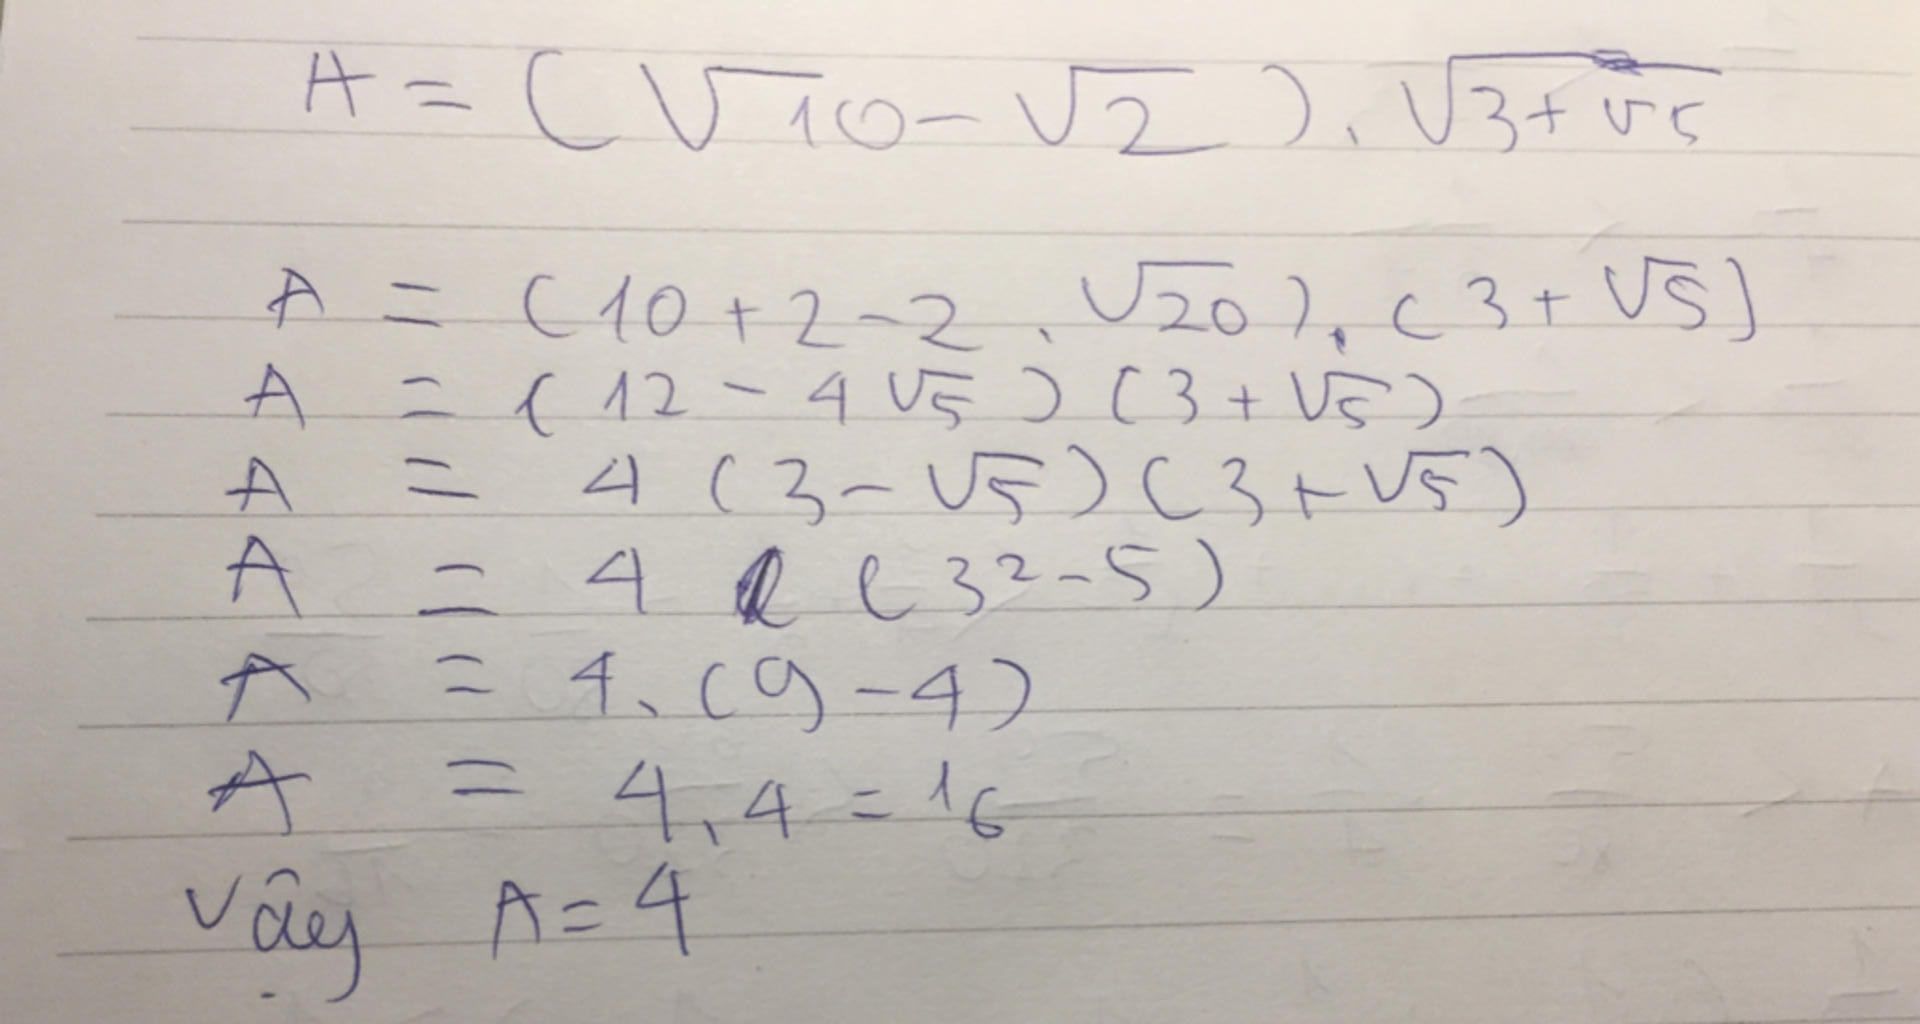 A = (√10 - √2). √3+√5
A = (10 + 2 - 2 . √20). (3 + √5)
A = (12 - 4√5) (3 + √5)
A = 4 (3 - √5) (3 + √5)
A = 4 (3² - 5)
A = 4. (9 - 4)
A = 4.4 = 16
Vậy A = 4